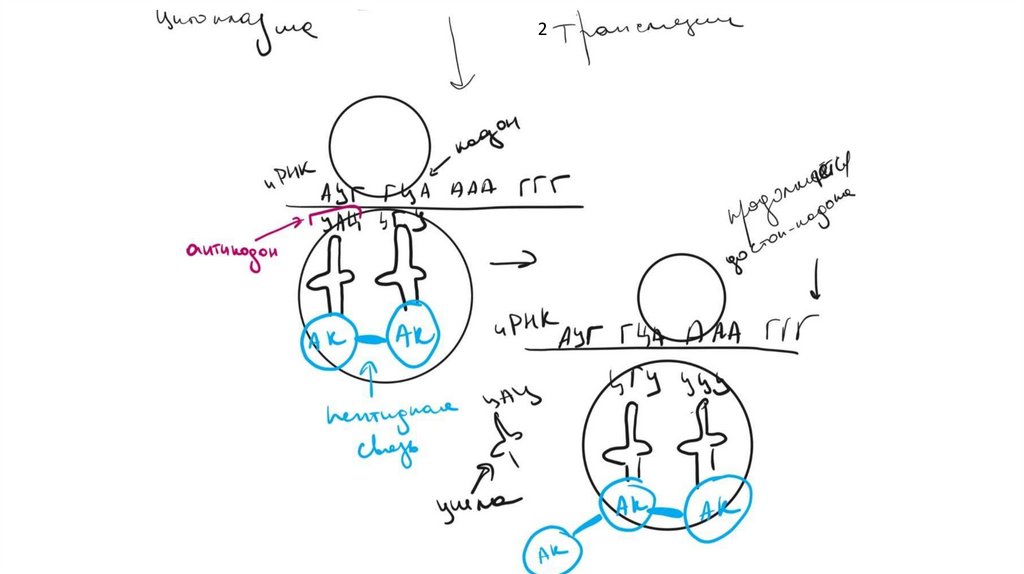 цитоплазма
2 Трансляция
кодон
иРНК
АУГ ГЦА ААА ГГГ
УАЦ ЦГУ
антикодон
АК АК
пептидная
связь
продолжается
до стоп-кодона
иРНК АУГ ГЦА ААА ГГГ
ЦГУ УУУ
УАЦ
ушла
АК АК
АК